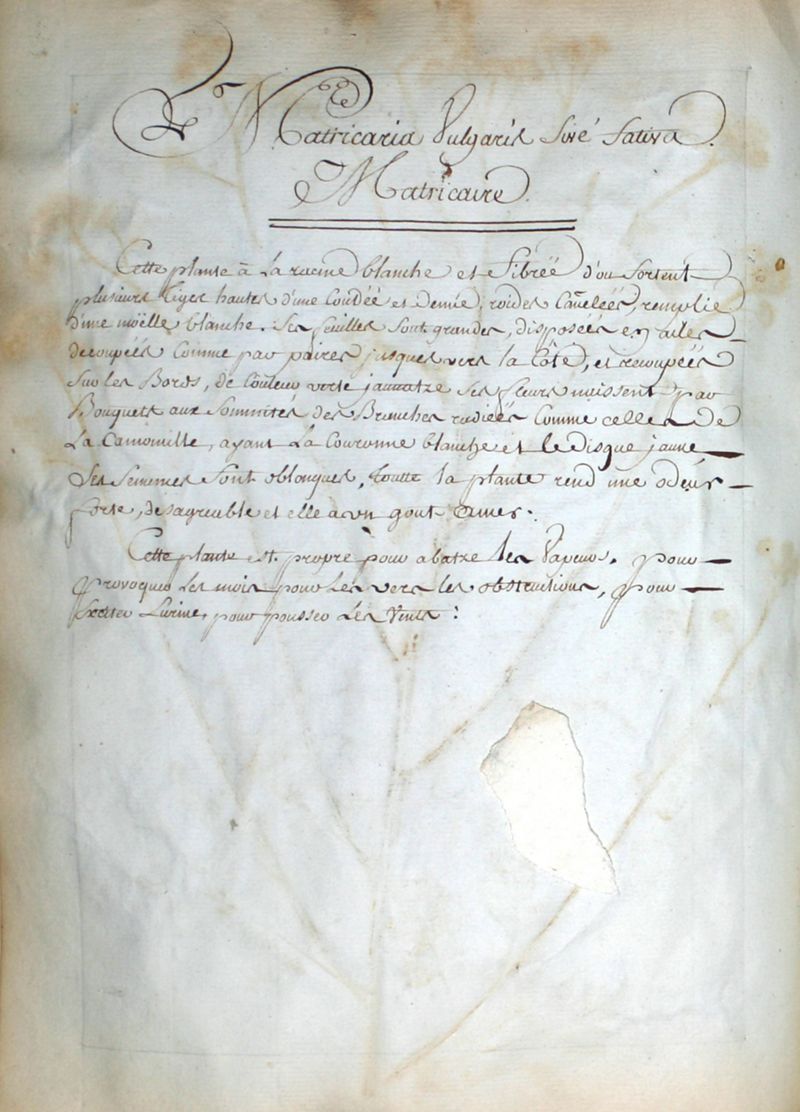 Matricaria Vulgaris Sivé Sativa.
Matricaire.
Cette plante à La racine blanche et Fibréé d'ou Sortent
plusieurs Tiges hautes d'une Coudéé et Demie, roides Caneleés, remplie
d'une moëlle blanche. Ses feuilles Sont grandes, disposeés en ailes
decoupeés Comme par paires jusques vers la Côte, et recoupeés
Sur les Bords, de Couleur verte jaunatre Ses fleurs naissent par
Bouquets aux Sommités des Branches radieés Comme celles De
La Camomille, ayant La Couronne blanche et le Disque jaune
Ses Semences Sont oblongues, toutte la plante rend une odeur
forte, desagreable et elle a un gout Amer.
Cette plante est propre pour abatre les Vapeurs, pour
provoquer Les mois pour Les vers les obstructions, pour
Exciter Lurine, pour pousser Les Vents :